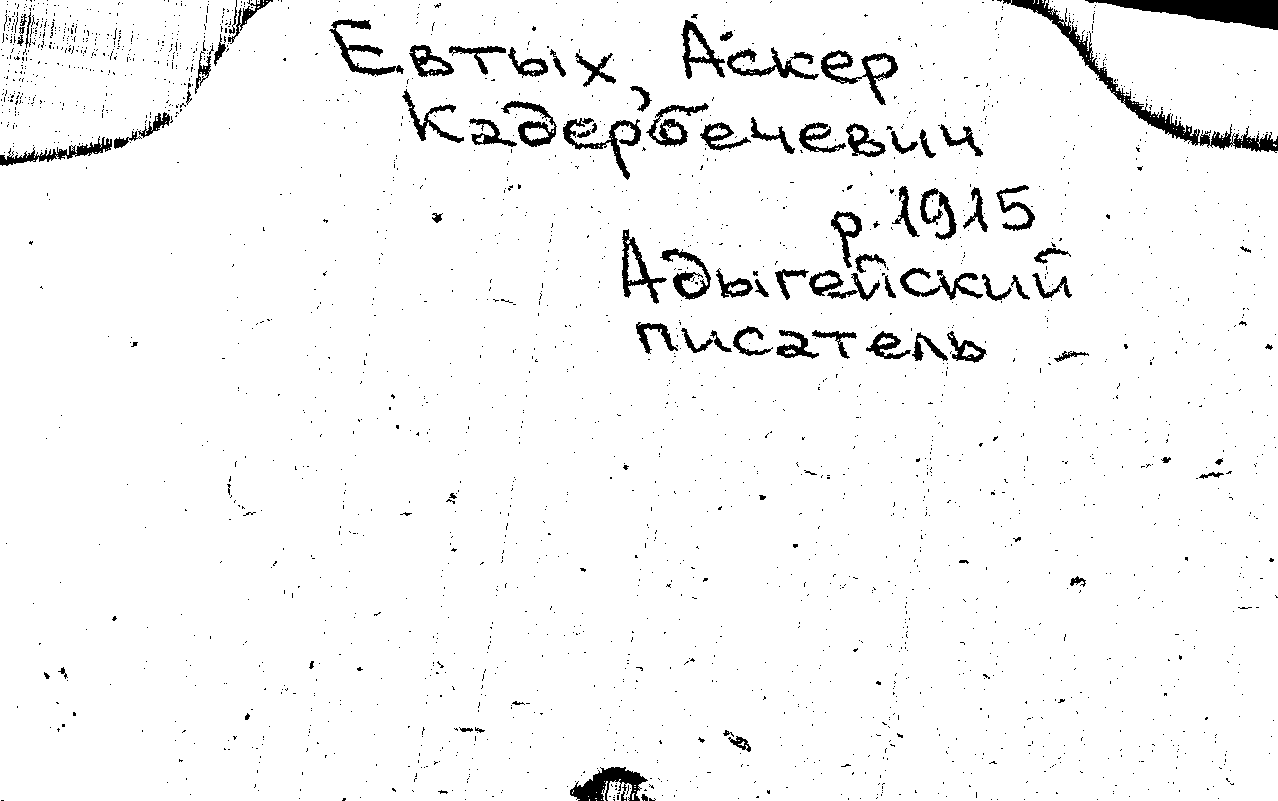 Евтых, Аскер
Кадербечевич
р. 1915
Адыгейский
писатель